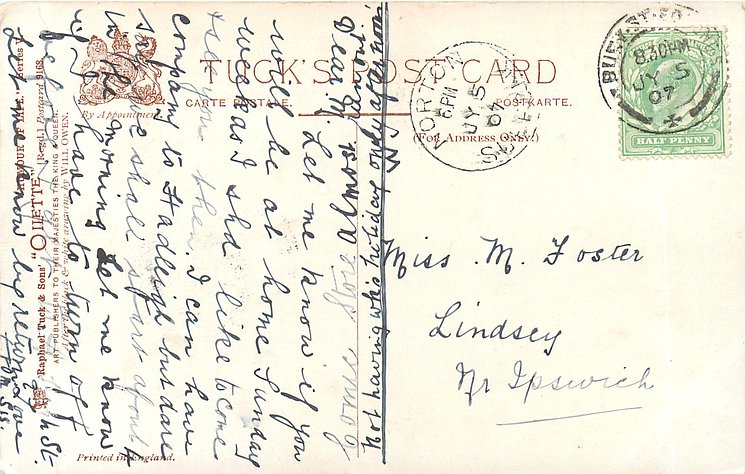 TUCK'S POST CARD
CARTE POSTALE.
POSTKARTE.
(FOR ADDRESS ONLY.)
By Appointment.
BURY ST. ED
8.30 PM
JY 5
07
ORTON
6 PM
JY 5
07
HALF PENNY
Miss. M. Foster
Lindsey
Nr Ipswich
Dear M
Let me know if you
will be at home Sunday
week as I shd like to come
& see you then. I can have
company to Hadleigh but dare
say we shall start about
in the morning let me know
if I have to turn of
Let me know by return love
from Sis.
Not having whs holiday only afternoon
Raphael Tuck & Sons' "OILETTE" [Regd.] Postcard 9168.
"HUMOUR OF LIFE." Series V
ART PUBLISHERS TO THEIR MAJESTIES THE KING & QUEEN.
After the black & white drawing by WILL OWEN.
Printed in England.